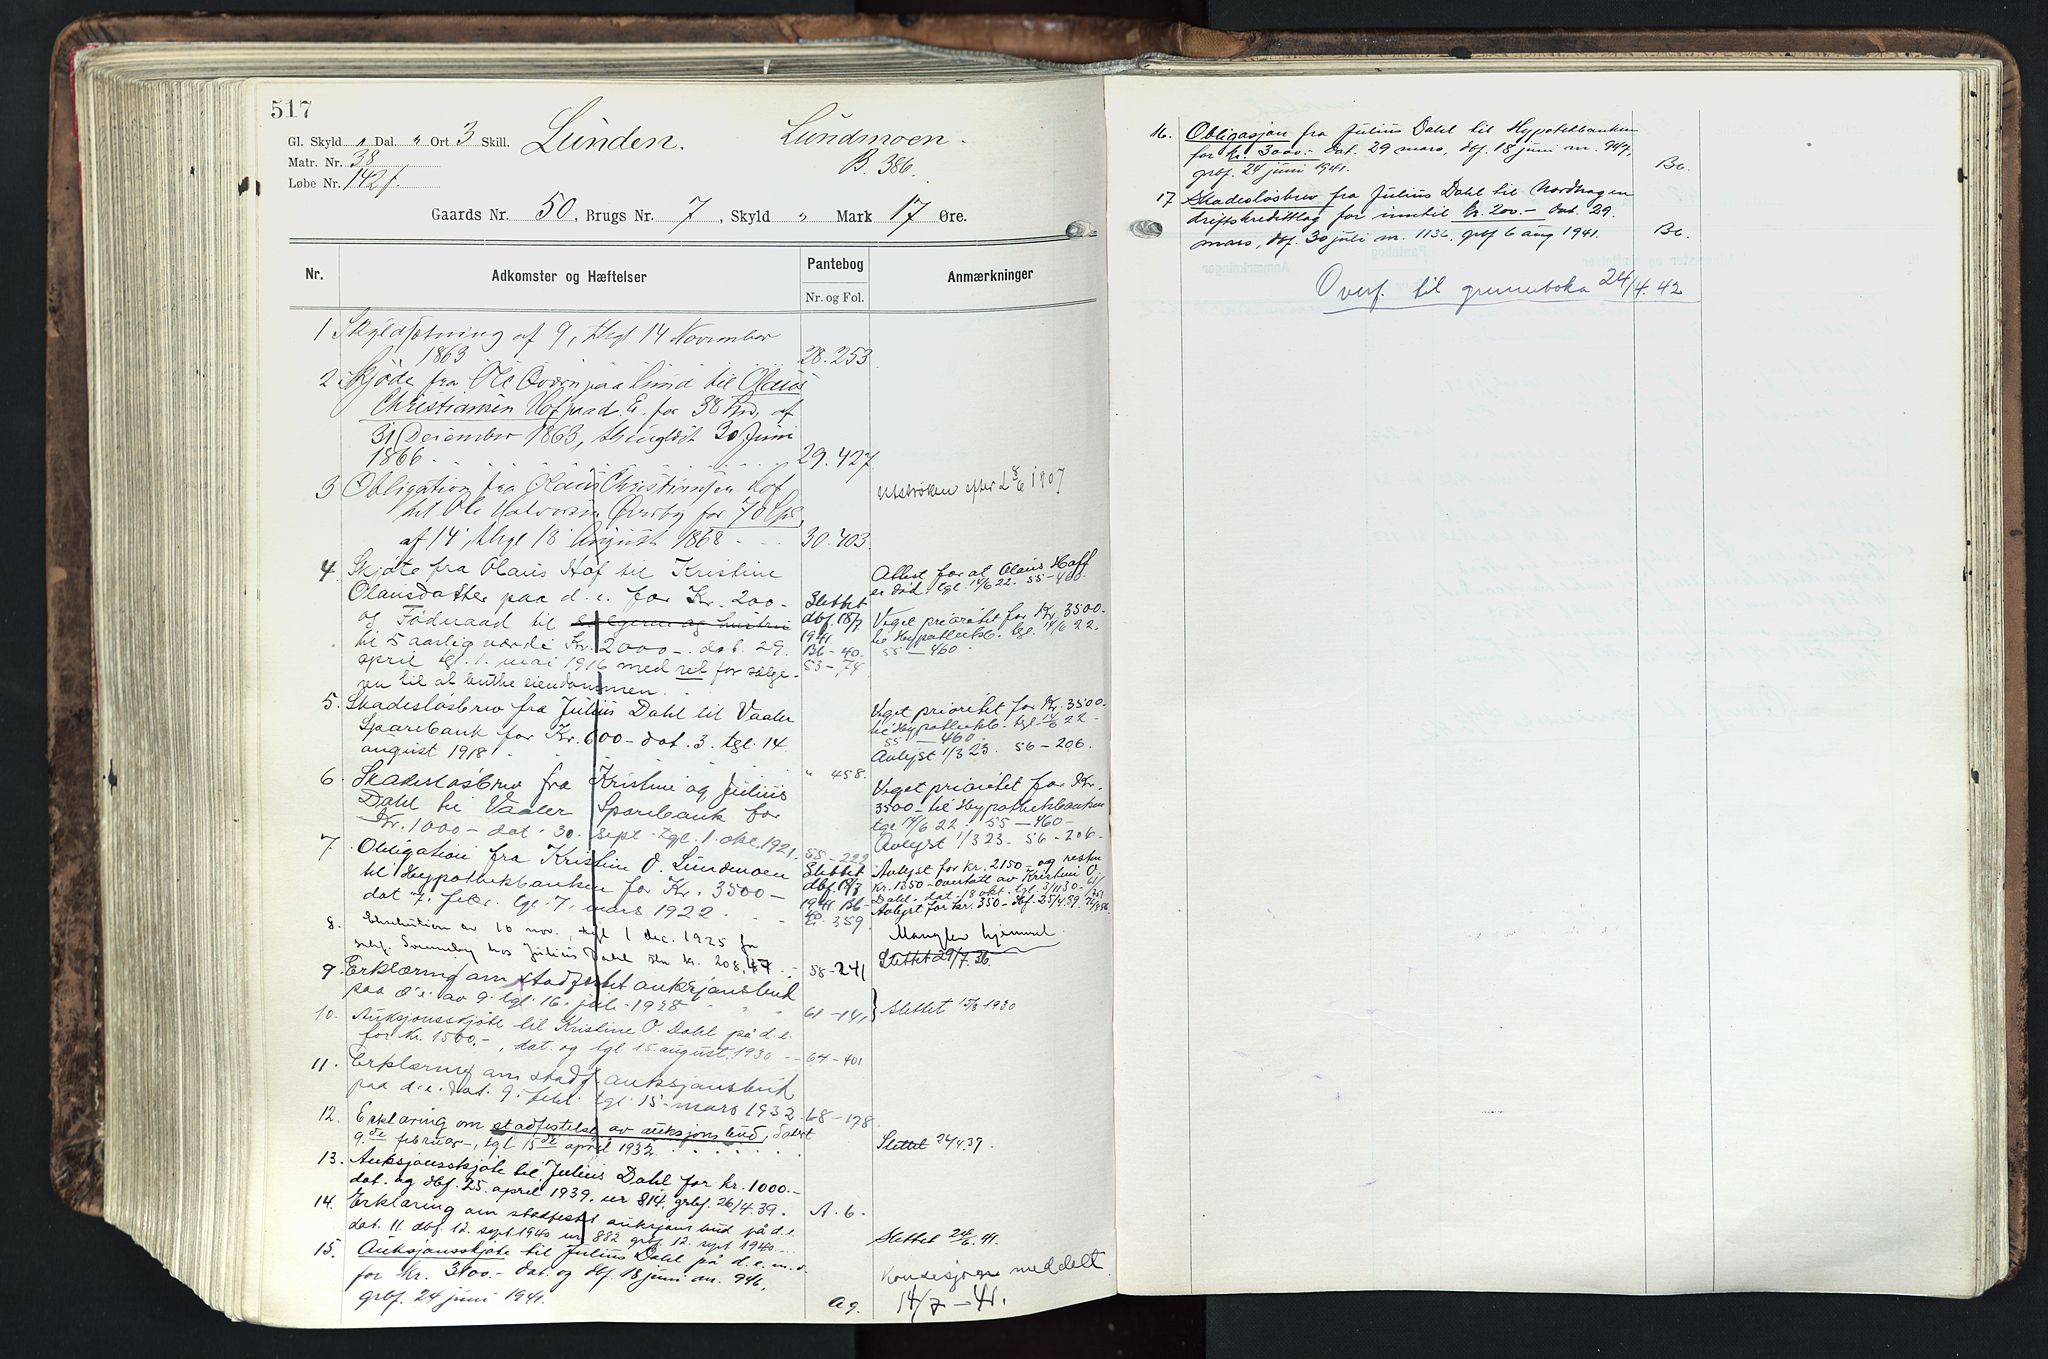 517
Gl. Skyld " Dal. " Ort 3 Skill. Lunden. Lundmoen.
Matr. Nr. 38 B. 386.
Løbe Nr. 142f.
Gaards Nr. 50, Brugs Nr. 7, Skyld " Mark 17 Øre.
Nr. Adkomster og Hæftelser Pantebog Anmærkninger
Nr. og Fol.
1 Skyldsætning af 9, thgl 14 November
1863 28.253
2 Skjøde fra Ole paa Lund til Olaus
Christiansen Hof paa d. E. for 38 Spd, af
31 December 1863, thinglæst 30 Juni
1866. 29.427
3 Obligation fra Olaus Christiansen Hof
til Ole Halvorsen Øverby for 70 Spd,
af 14, thgl 18 August 1868 30.403.
Utstrøken efter L 8/6 1907
4. Skjøte fra Olaus Hof til Kristine
Olausdatter paa d. e. for Kr. 200.-
og Føderaad til sælgeren og hustru
til 5 aarlig værdi Kr. 2000-. dat. 29.
april tgl. 1. mai 1916 med ret for sælge-
ren til at bruke eiendommen.
Slettet
dbf. 18/7
1941
B6-40.
53-74
Attest for at Olaus Hoff
er død. tgl. 14/6 22. 55-460.
Veget prioritet for Kr. 3500-
til Hypothekb. tgl. 14/6 22.
55-460.
5. Skadesløsbrev fra Julius Dahl til Vaaler
Sparebank for Kr. 600- dat. 3. tgl. 14.
august 1918. " 458.
Veget prioritet for Kr. 3500-
til Hypothekb. tgl. 14/6 22-
55-460.
Avlyst 1/3 23. 56-206.
6. Skadesløsbrev fra Kristine og Julius
Dahl til Vaaler Sparebank for
Kr. 1000- dat. 30. sept. tgl. 1. okt. 1921. 55-222
Veget prioritet for Kr.
3500- til Hypothekbanken
tgl. 14/6 22. 55-460-
Avlyst 1/3 23. 56-206-
7. Obligation fra Kristine O. Lundmoen
til Hypothekbanken for Kr. 3500-
dat. 7. febr. tgl. 7. mars 1922.
Slettet
dbf. 18/7
1941 B6-
40. 359
Avlyst for kr. 2150- og resten
Kr. 1350- overtatt av Kristine O.
Dahl. dat. 18 okt. tgl. 3/11 30-
Avlyst for kr. 350- dbf. 25/4.39.
8. Eksekution av 10 nov., tgl 1 dec. 1925 for
Svenneby hos Julius Dahl stor kr. 208,47 58-241
Mangler hjemmel
Slettet 29/7. 26.
9. Erklæring om stadfestet auksjonsbud
paa d. e. av 9. tgl. 16. juli 1928 61-141
} Slettet 15/8 1930
10. Auksjonsskjøte til Kristine O. Dahl på d. e.
for kr. 1500.-, dat. og tgl. 15. august 1930 -- 64-401
11. Erklæring om stadf. auksjonsbud
paa d. e. dat. 9. febr. tgl. 15 mars 1932. 68-178
12. Erklæring om stadfestelse av auksjonsbud, datert
9.de februar, tgl 15de april 1932.
Slettet 26/4.39.
13. Auksjonsskjøte til Julius Dahl for kr. 1000.-
dat. og dbf. 25. april 1939. nr 814. grbf. 26/4.39. A. 6.
14. Erklæring om stadfestet auksjonsbud på d. e.
dat. 11. dbf. 12. sept 1940 nr. 882 grbf. 12. sept 1940
Slettet 24/6.41.
15. Auksjonsskjøte til Julius Dahl på d. e. m. v.
for kr. 3100.- dat. og dbf. 18 juni nr. 946,
grbf. 24 juni 1941. A9.
Konsesjon meddelt
14/7-41.
16. Obligasjon fra Julius Dahl til Hypotekbanken
for kr. 3000.- dat. 29 mars, dbf. 18 juni nr. 947,
grbf. 24 juni 1941. B6.
17 Skadesløsbrev fra Julius Dahl til Nordhagen
driftskredittlag for inntil kr. 200.- dat. 29.
mars, dbf. 30 juli nr. 1136, grbf 6 aug 1941. B6.
Overf. til grunnboka 24/4.42